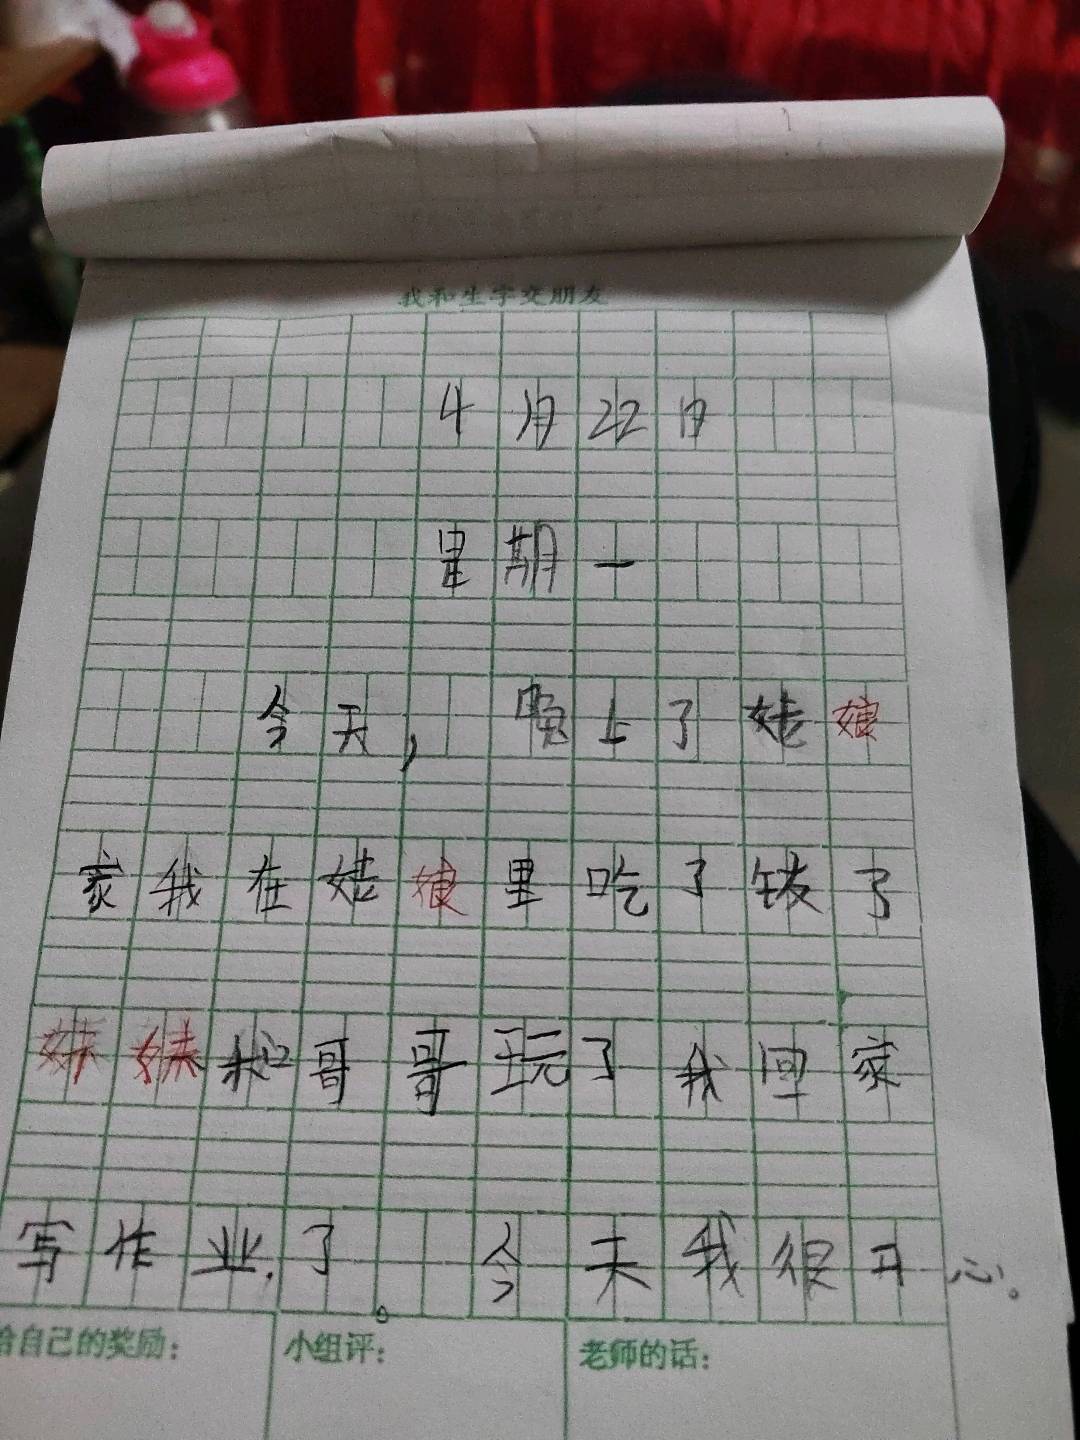 我和生字交朋友
4月22日
星期一
今天，晚上了姑娘
家我在姑娘里吃了饭了
妹妹和哥哥玩了我回家
写作业了。今天我很开心。
给自己的奖励：
小组评：
老师的话：